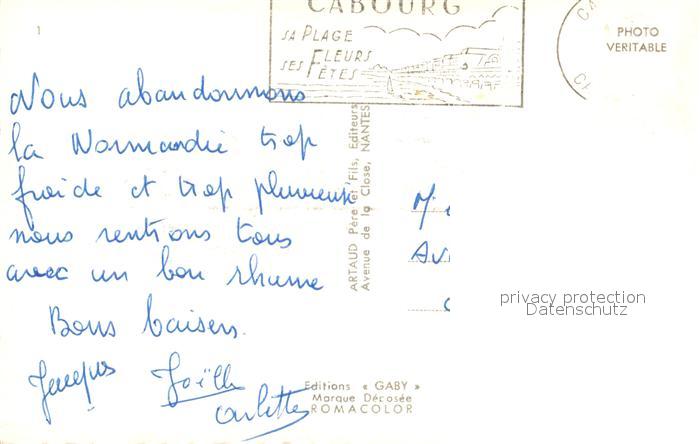 CABOURG
SA PLAGE
SES FLEURS
FÊTES
1
PHOTO
VERITABLE
Nous abandonnons
la Normandie trop
froide et trop pluvieuse
nous rentrons tous
avec un bon rhume
Bons baisers.
Jacques Joëlle
Arlette
ARTAUD Père et Fils, Editeurs
Avenue de la Close, NANTES
M
Av
privacy protection
Datenschutz
Editions « GABY »
Marque Déposée
ROMACOLOR